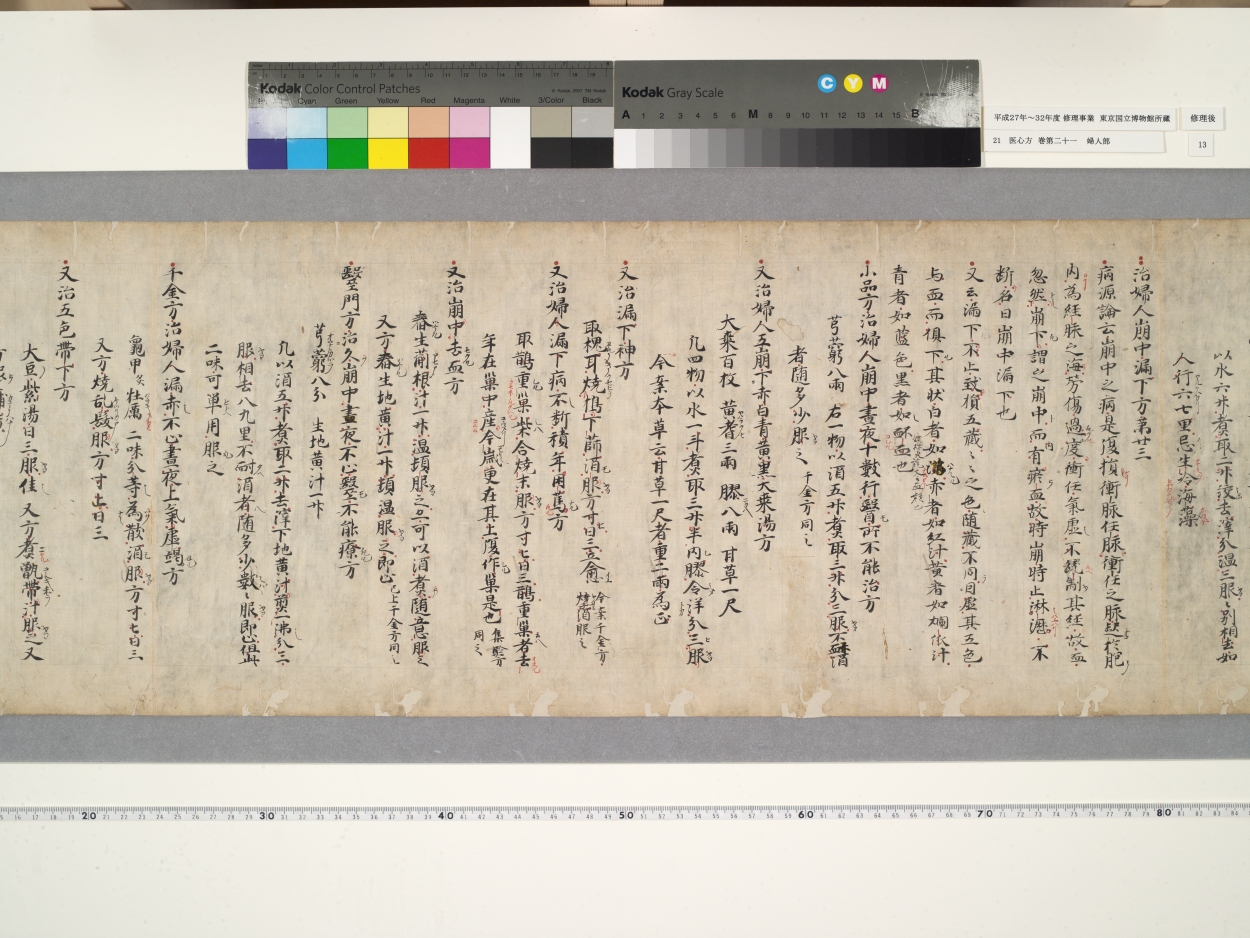 Kodak Color Control Patches
Blue Cyan Green Yellow Red Magenta White 3/Color Black
Kodak Gray Scale
C Y M
A 1 2 3 4 5 6 M 8 9 10 11 12 13 14 15 B
平成27年~32年度 修理事業 東京国立博物館所蔵
修理後
21 医心方 巻第二十一 婦人部
13
以水六升煮取二升去滓分温三服
人行六七里忌生冷海藻
治婦人崩中漏下方第廿三
病源論云崩中之病是復損衝脉任脉衝任之脉起於胞
内為経脉之海劳傷過度衝任氣虚不統制其経故血
忽然崩下謂之崩中而有瘀血故時崩時止淋瀝不
断名曰崩中漏下也
又云漏下不止致損五蔵之色随蔵不同因虚其五色
与血而俱下其状白者如赤者如紅汁黄者如爛依汁
青者如藍色黑者如血也
小品方治婦人崩中昼夜十數行醫所不能治方
芎藭八兩 右一物以酒五升煮取三升分三服不酒
者随多少服之 千金方同之
又治婦人五崩下赤白青黄黑大枣湯方
大枣百枚 黄耆三兩 膠八兩 甘草一尺
凡四物以水一斗煮取三升半内膠令洋分三服
今案本草云甘草一尺者重二兩為正
又治漏下神方
取槐耳燒擣下篩酒服方寸日三愈
又治婦人漏下病不断積年用萬方
取鵲重巢柴合燒末服方寸七日三鵲重巢者去
年在巢中産今歳更在其上復作巢是也 集驗方同之
又治崩中去血方
春生葥根汁一升温頓服之亦可以酒者随意服之
又方春生地黄汁一升頓温服之即止已上千金方同之
醫門方治久崩中昼夜不止醫不能療方
芎藭八分 生地黄汁一升
凡以酒五升煮取二升去滓下地黄汁煎一沸分三
服相去八九里不耐酒者随多少數服即止
二味可單用服之
千金方治婦人漏赤不止昼夜上氣虚竭方
龜甲 牡厲 二味分等為散酒服方寸七日三
又方燒乱髪服方寸匕日三
又治五色帶下方
大豆紫湯日二服佳 又方煮甑帶汁服之又